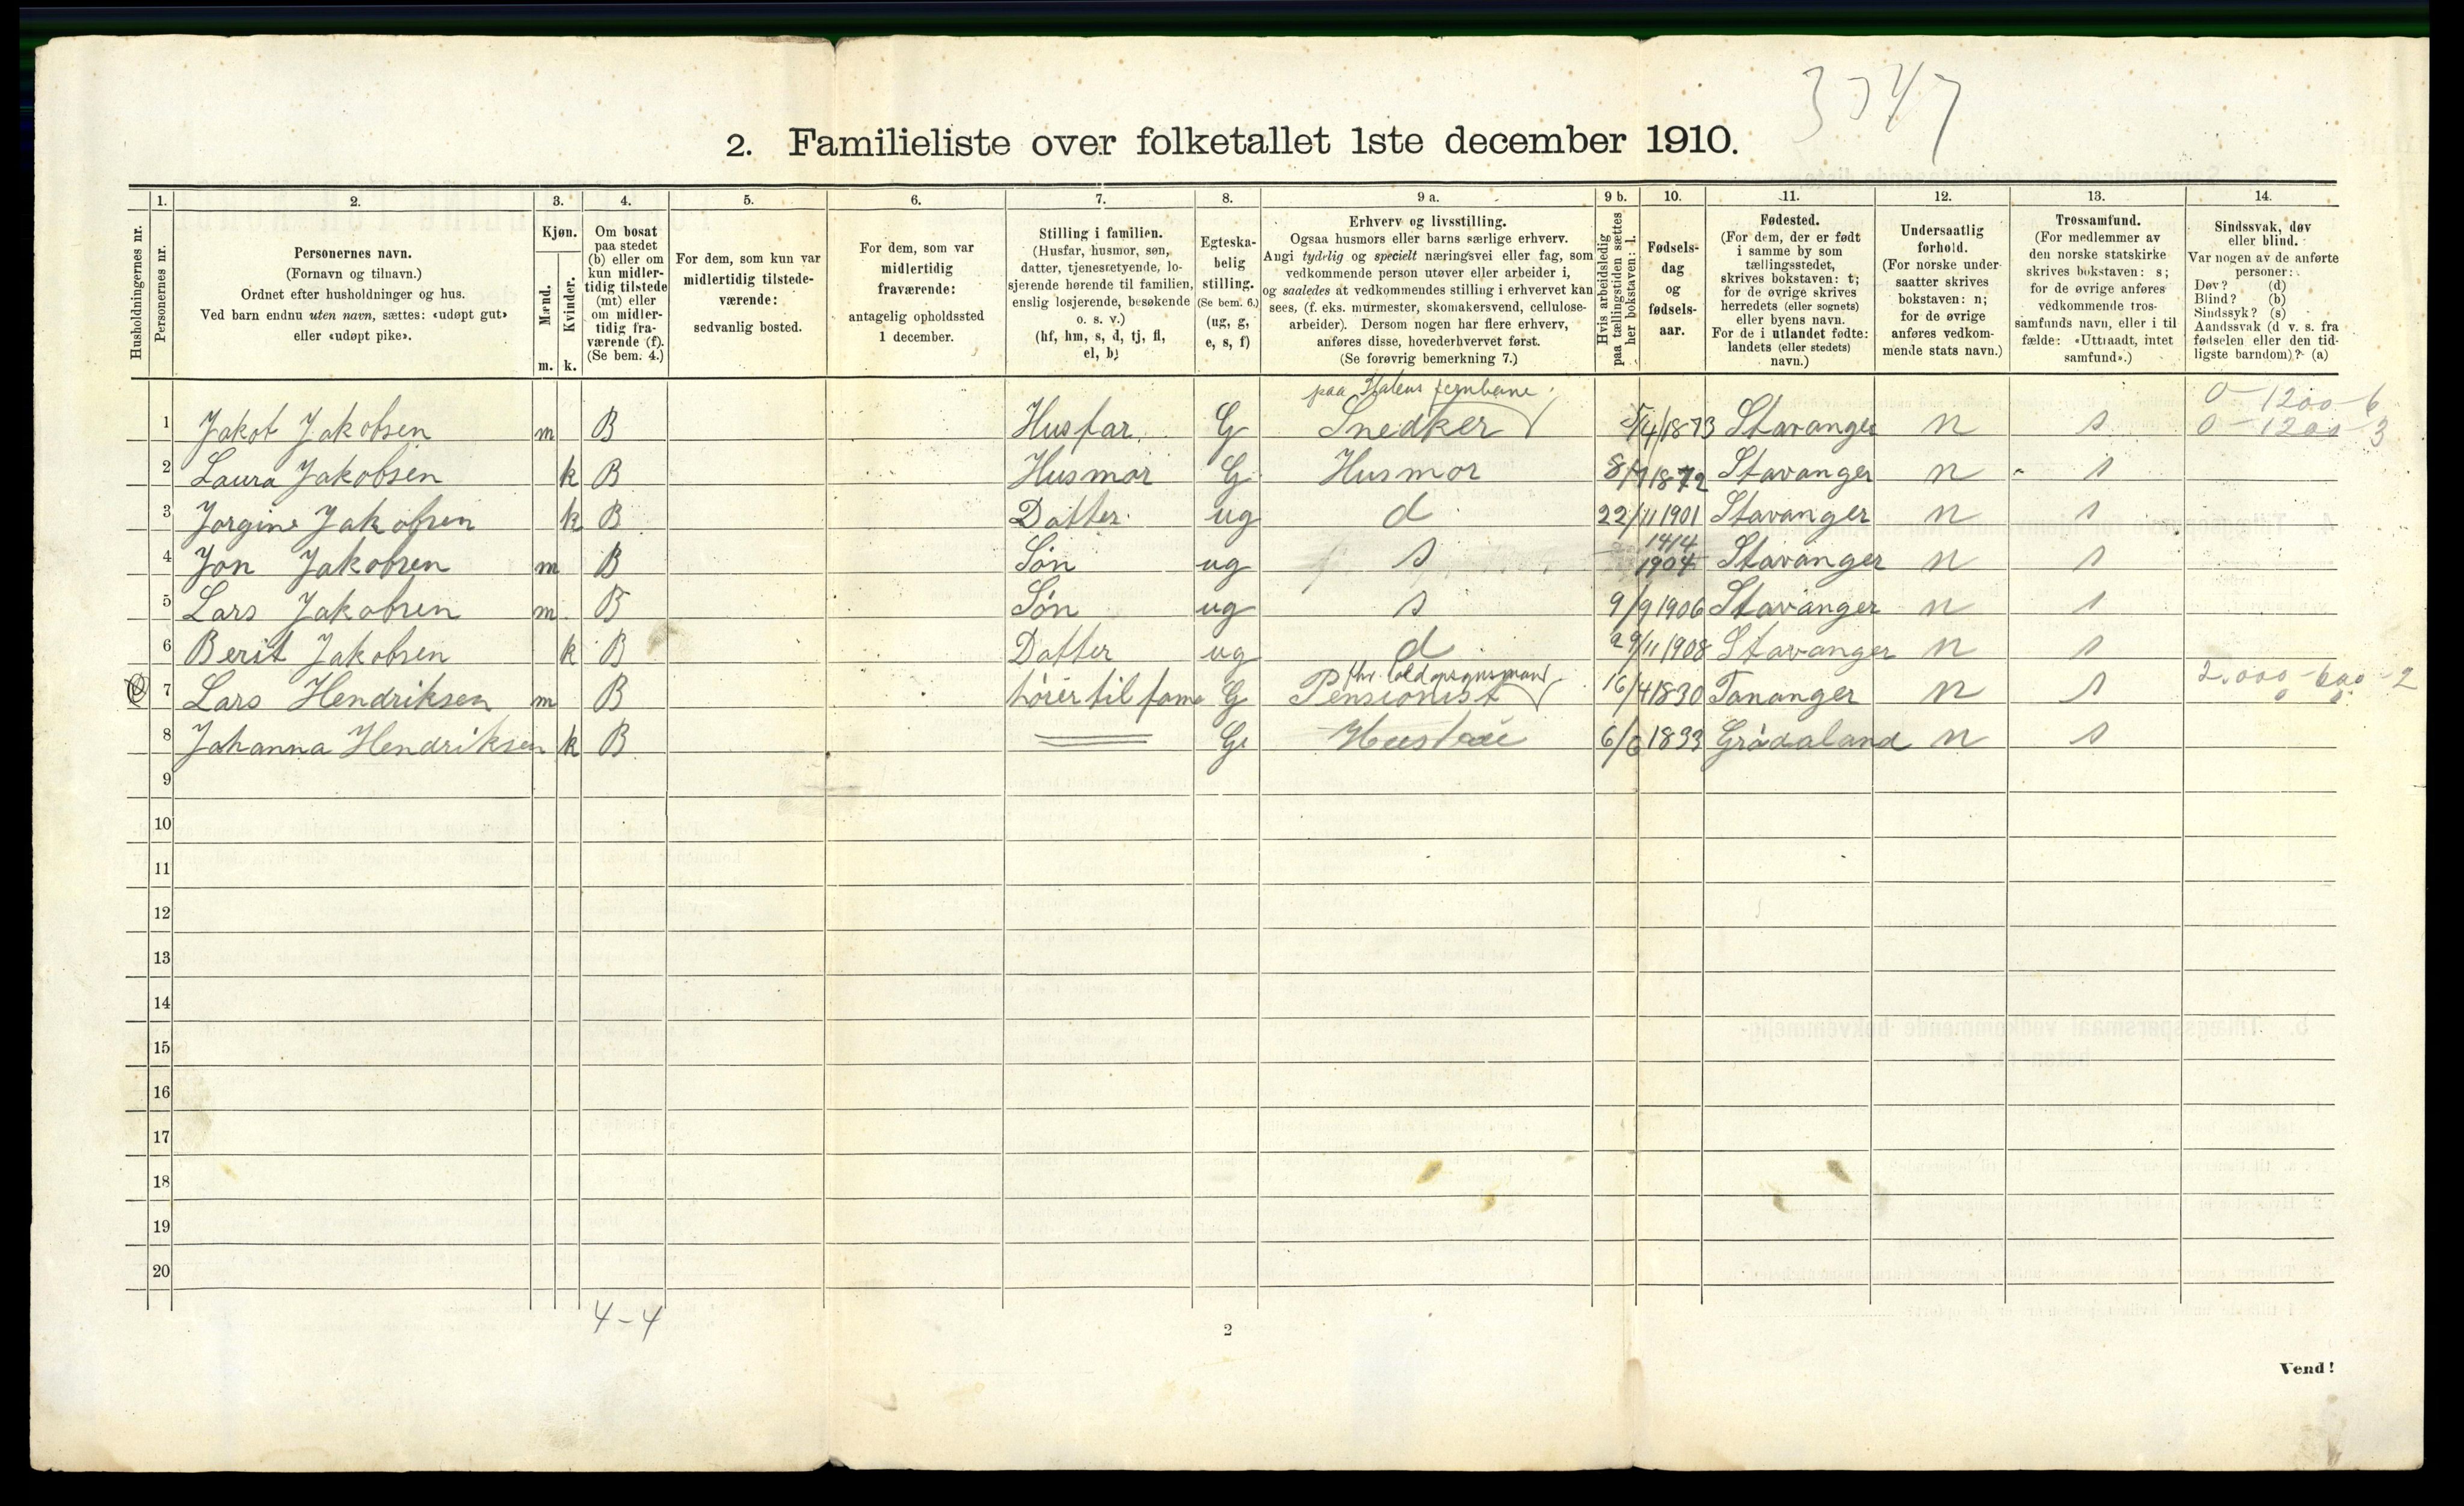 3747
2. Familieliste over folketallet 1ste december 1910.
Husholdningernes nr.
1.
Personernes nr.
2.
Personernes navn.
(Fornavn og tilnavn.)
Ordnet efter husholdninger og hus.
Ved barn endnu uten navn, sættes: «udøpt gut»
eller «udøpt pike».
3.
Kjøn.
Mænd.
Kvinder.
m. k.
4.
Om bosat
paa stedet
(b) eller om
kun midler-
tidig tilstede
(mt) eller
om midler-
tidig fra-
værende (f).
(Se bem. 4.)
5.
For dem, som kun var
midlertidig tilstede-
værende:
sedvanlig bosted.
6.
For dem, som var
midlertidig
fraværende:
antagelig opholdssted
1 december.
7.
Stilling i familien.
(Husfar, husmor, søn,
datter, tjenestetyende, lo-
sjerende hørende til familien,
enslig losjerende, besøkende
o. s. v.)
(hf, hm, s, d, tj, fl,
el, b)
8.
Egteska-
belig
stilling.
(Se bem. 6.)
(ug, g,
e, s, f)
9 a.
Erhverv og livsstilling.
Ogsaa husmors eller barns særlige erhverv.
Angi tydelig og specielt næringsvei eller fag, som
vedkommende person utøver eller arbeider i,
og saaledes at vedkommendes stilling i erhvervet kan
sees, (f. eks. murmester, skomakersvend, cellulose-
arbeider). Dersom nogen har flere erhverv,
anføres disse, hovederhvervet først.
(Se forøvrig bemerkning 7.)
9 b.
Hvis arbeidsledig
paa tællingstiden sættes
her bokstaven: l.
10.
Fødsels-
dag
og
fødsels-
aar.
11.
Fødested.
(For dem, der er født
i samme by som
tællingsstedet,
skrives bokstaven: t;
for de øvrige skrives
herredets (eller sognets)
eller byens navn.
For de i utlandet fødte:
landets (eller stedets)
navn.)
12.
Undersaatlig
forhold.
(For norske under-
saatter skrives
bokstaven: n;
for de øvrige
anføres vedkom-
mende stats navn.)
13.
Trossamfund.
(For medlemmer av
den norske statskirke
skrives bokstaven: s;
for de øvrige anføres
vedkommende tros-
samfunds navn, eller i til
fælde: «Uttraadt, intet
samfund».)
14.
Sindssvak, døv
eller blind.
Var nogen av de anførte
personer:
Døv? (d)
Blind? (b)
Sindssyk? (s)
Aandssvak (d v. s. fra
fødselen eller den tid-
ligste barndom)? (a)
paa Statens jernbane
0 - 1200 - 6
1 Jakob Jakobsen m B Husfar. G Snedker 5/4/1873 Stavanger n s 0 - 1200 - 3
2 Laura Jakobsen k B Husmor G Husmor 1872 Stavanger n s
3 Jorgine Jakobsen k B Datter ug d 22/11 1901 Stavanger n s
4 Jon Jakobsen m B Søn ug s 14/4 1904 Stavanger n s
5 Lars Jakobsen m B Søn ug s 9/9 1906 Stavanger n s
6 Berit Jakobsen k B Datter ug d 29/11 1908 Stavanger n s
7 Lars Hendriksen m B hører til fam G Pensionist fhv. toldopsynsmand 16/4 1830 Tananger n s 2.000 - 600 - 2
8 Johanna Hendriksen k B G Hustru 6/6 1833 Grødaland n s
9
10
11
12
13
14
15
16
17
18
19
20
4-4
2
Vend!